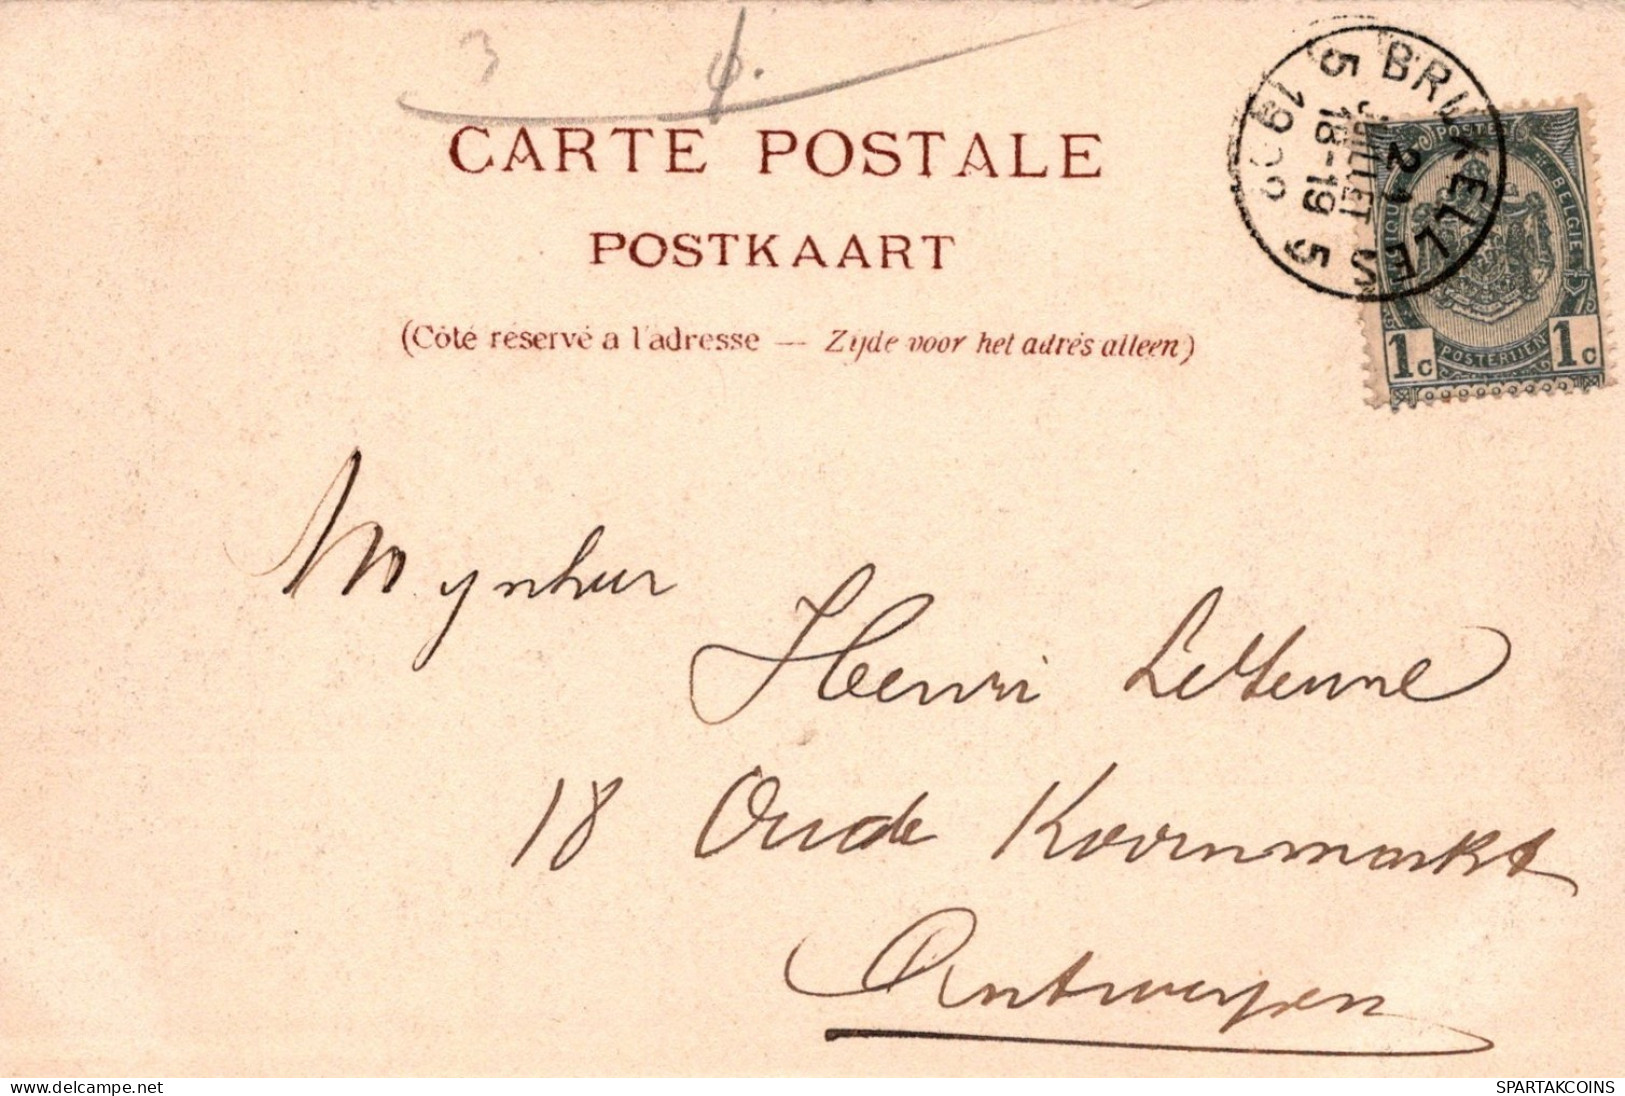 3
CARTE POSTALE
POSTKAART
(Côté réservé a l'adresse — Zijde voor het adres alleen)
BRUXELLES 5
5
21
JUILLET
18-19
19
POSTE
BELGIE
POSTERIJEN
1c 1c
Mynheer
Henri
18 Oude Koornmarkt
Antwerpen
www.delcampe.net
SPARTAKCOINS